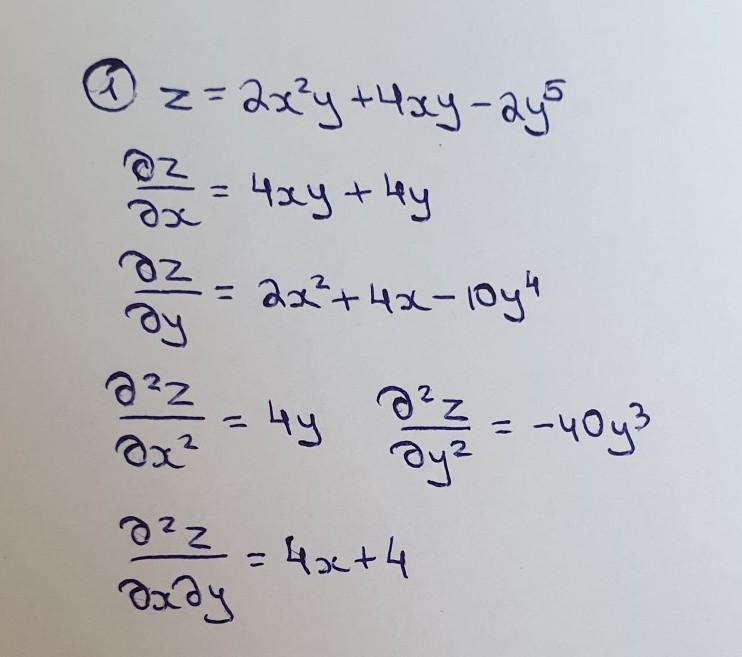 ① z = 2x²y + 4xy - 2y⁵
∂z/∂x = 4xy + 4y
∂z/∂y = 2x² + 4x - 10y⁴
∂²z/∂x² = 4y   ∂²z/∂y² = -40y³
∂²z/∂x∂y = 4x + 4